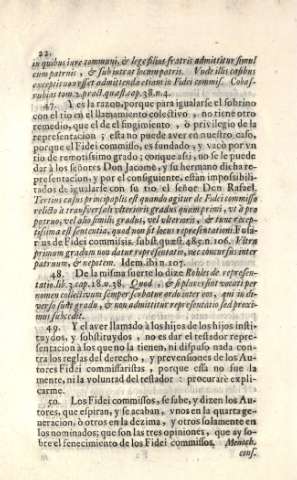 22.
in quibus iure communi, & lege filius fratris admittitur simul
cum patruis, & subintrat locum patris. Unde illis casibus
exceptiuus esset admittenda etiam in Fidei commiss. Cobar-
rubias tom. 2. pract. quæst. cap. 38. n. 4.
47. Y es la razon, porque para igualarse el sobrino
con el tio en el llamamiento colectivo, no tiene otro
remedio, que el de el fingimiento, ò privilegio de la
representacion y esta no puede aver en nuestro caso,
porque el Fidei commisso, es fundado, y vacò por vn
tio de remotissimo grado; conque assi, no se le puede
dar à los señores Don Jacome, y su hermano dicha re-
presentacion, y por el consiguiente, estàn imposibili-
tados de igualarse con su tio el señor Don Rafael.
Tertius casus principalis est quando agitur de Fidei commisso
relicto à transversali ulterioris gradus quam primi, ut à pro
patruo, vel alio similis gradus, vel ulterioris, & tunc recep-
tissima est sententia, quod non sit locus representationi. Fusa-
rius de Fidei commissis. subst. quæst. 485. n. 106. Ultra
primum gradum non datur representatio, nec concursus inter
patruum, & nepotem. Idem. ibi n. 107.
48. De la misma suerte lo dize Robles de represen-
tatio. lib. 3. cap. 18. n. 38. Quod, & si plures sint vocati per
nomen collectivum semper servatur ordo inter eos, qui in di-
verso sunt gradu, & non admittitur representatio sed proxi-
mus succedit.
49. Y el aver llamado à los hijos de los hijos insti-
tuydos, y substituydos, no es dar el testador repre-
sentacion à los que no la tienen, ni dispuso nada con-
tra los reglas del derecho, y prevensiones de los Au-
tores Fidei commissaristas, porque essa no fue la
mente, ni la voluntad del testador: procurarè expli-
carme.
50. Los Fidei commissos, se sabe, y dizen los Au-
tores, que espiran, y se acaban, vnos en la quarta ge-
neracion, ò otros en la dezima, y otros solamente en
los nominados; que son las tres opiniones, que ay so-
bre el fenecimiento de los Fidei commissos, Menoch.
cons.